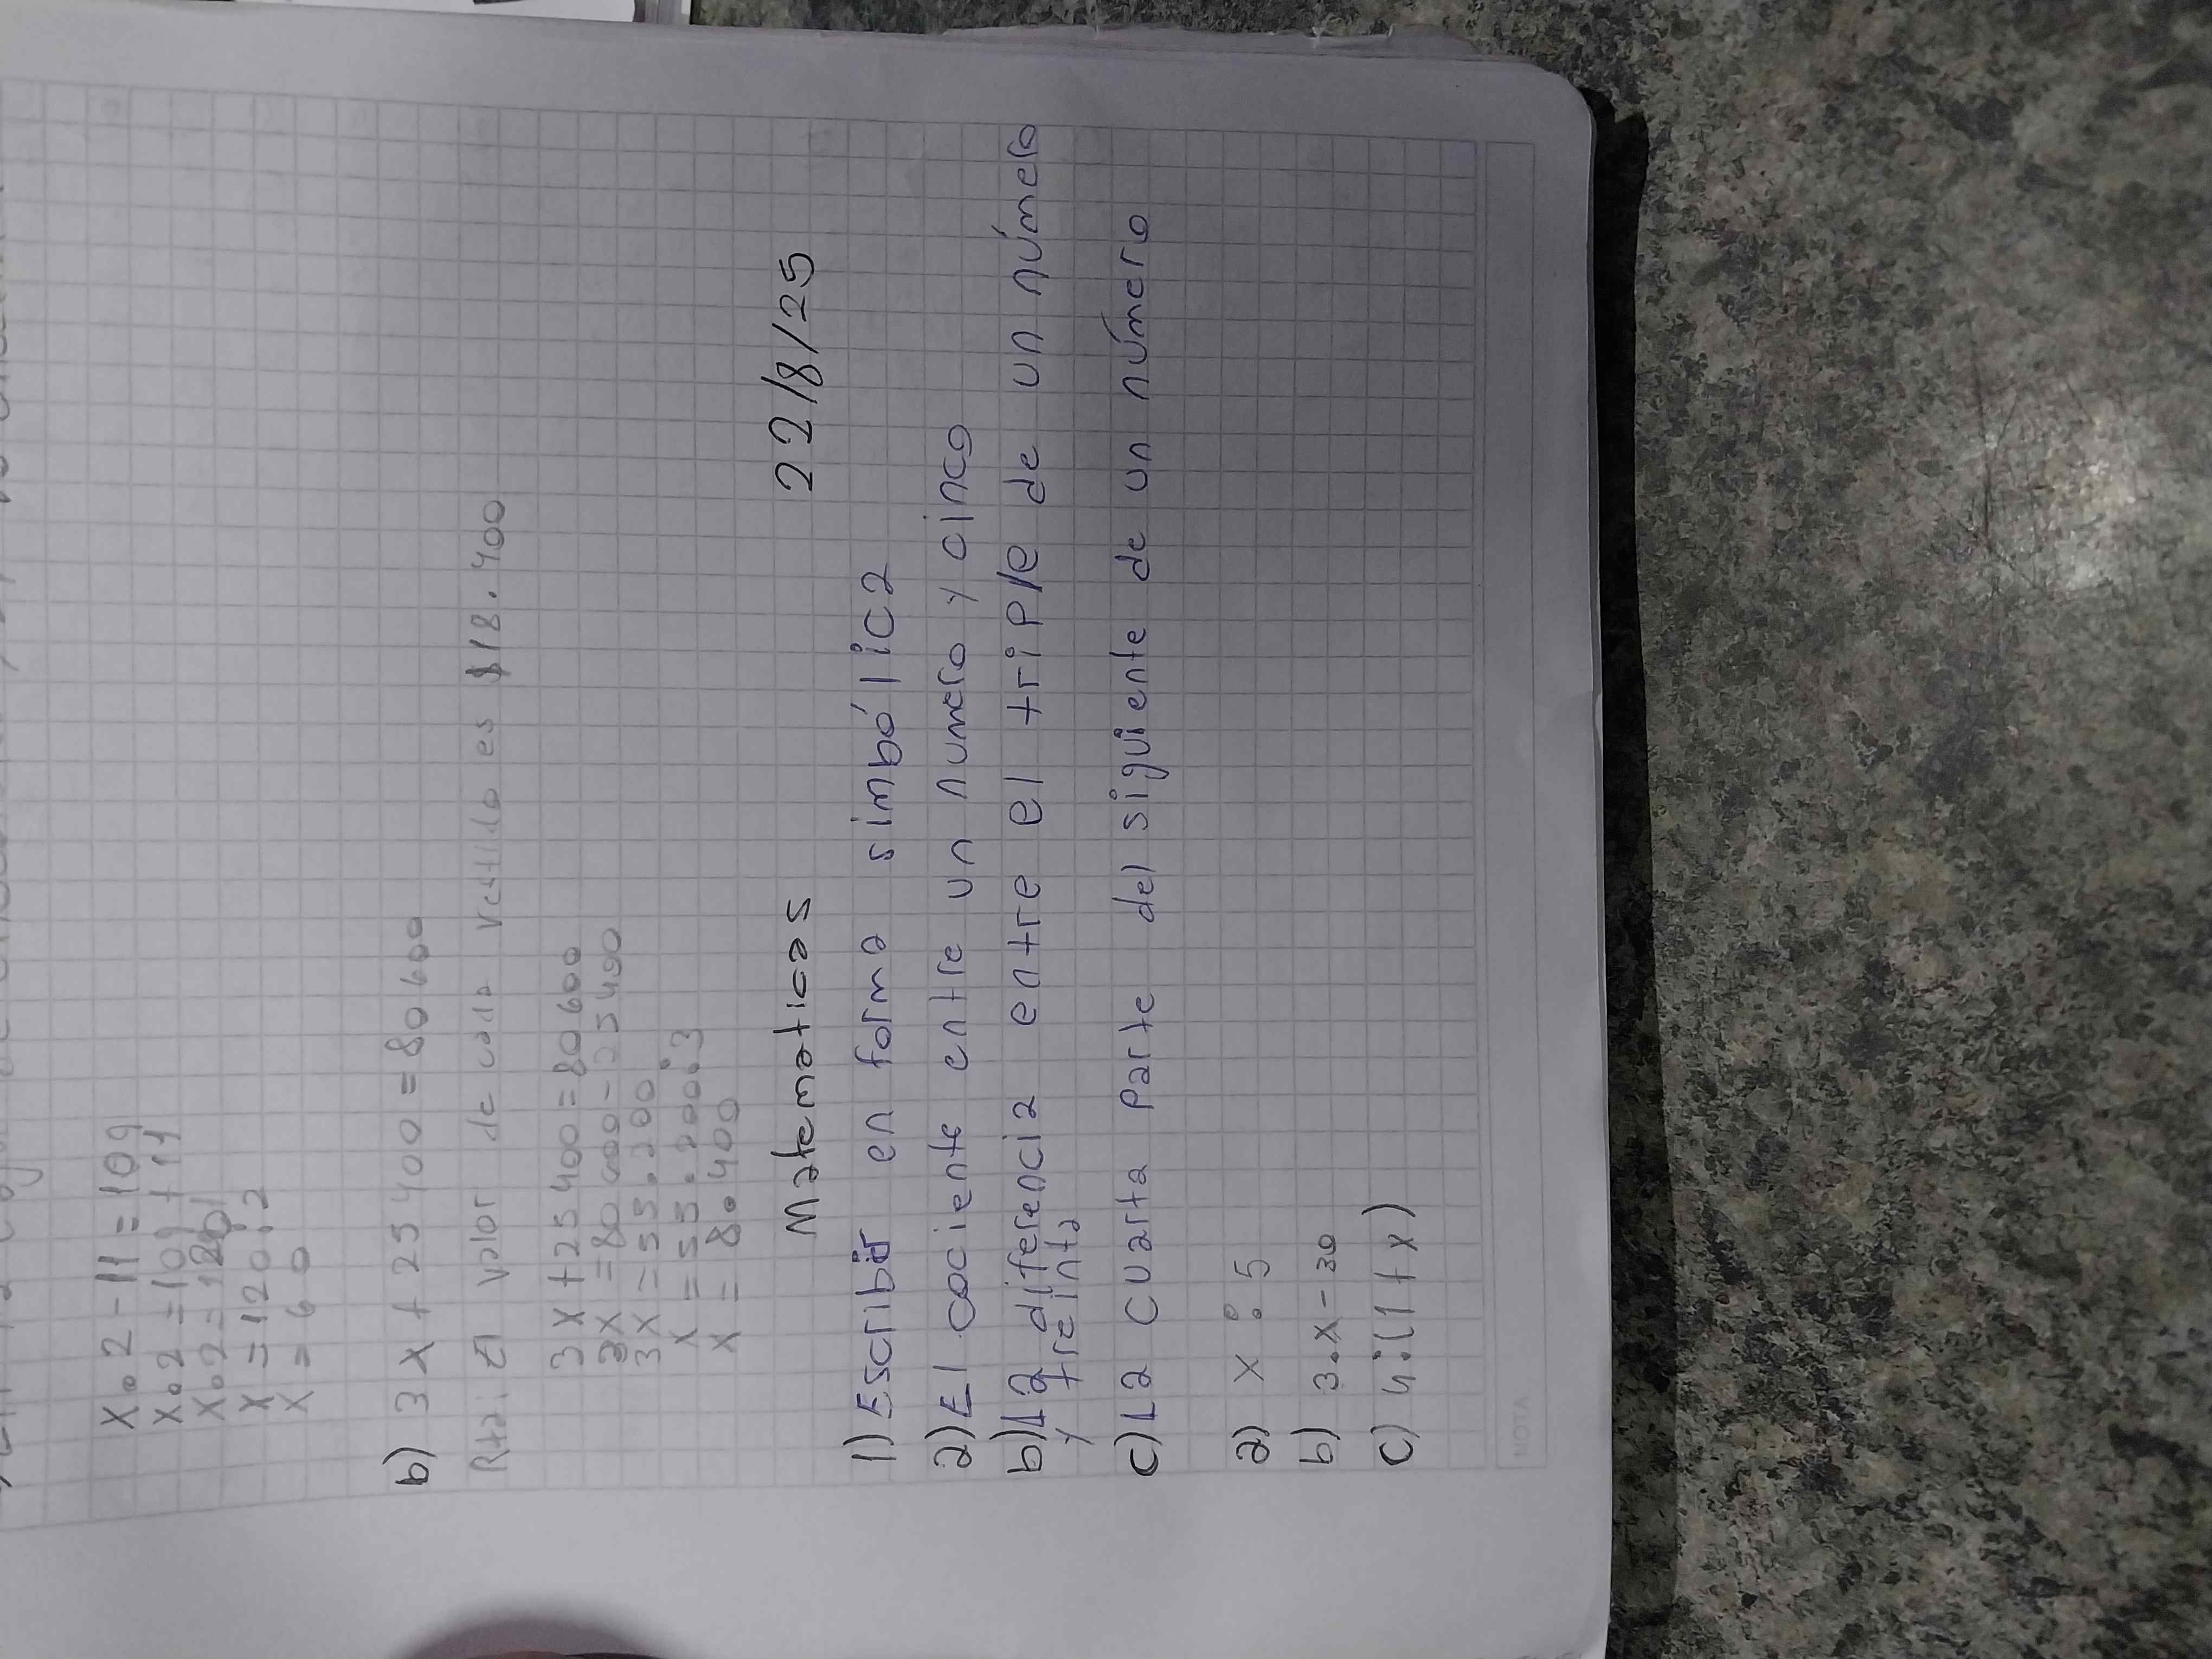 x.2-11=109
x.2=109+11
x.2=120
x=120:2
x=60
b) 3x+25400=80600
Rta: El valor de cada vestido es $18.400
3x+25400=80600
3x=80600-25400
3x=55.200
x=55.200:3
x=8.400
Matematicas 22/8/25
1) Escribir en forma simbólica
a) El cociente entre un numero y cinco
b) La diferencia entre el triple de un número
y treinta
c) La cuarta parte del siguiente de un número
a) x:5
b) 3.x-30
c) 4:(1+x)
NOTA